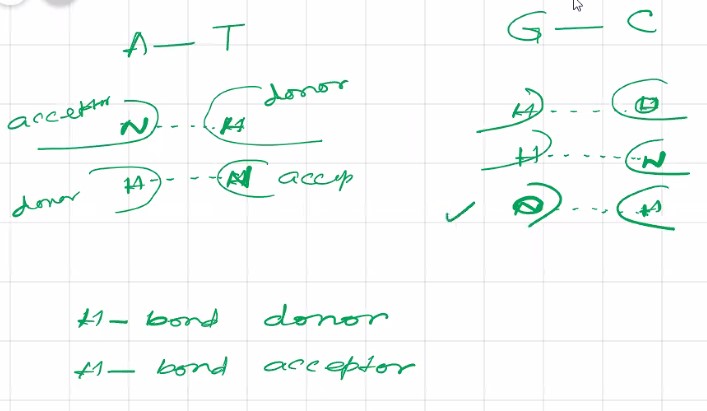 A — T
G — C
acceptor N --- H donor
donor H --- accep
H --- O
H --- N
✓ --- H
H - bond donor
H - bond acceptor